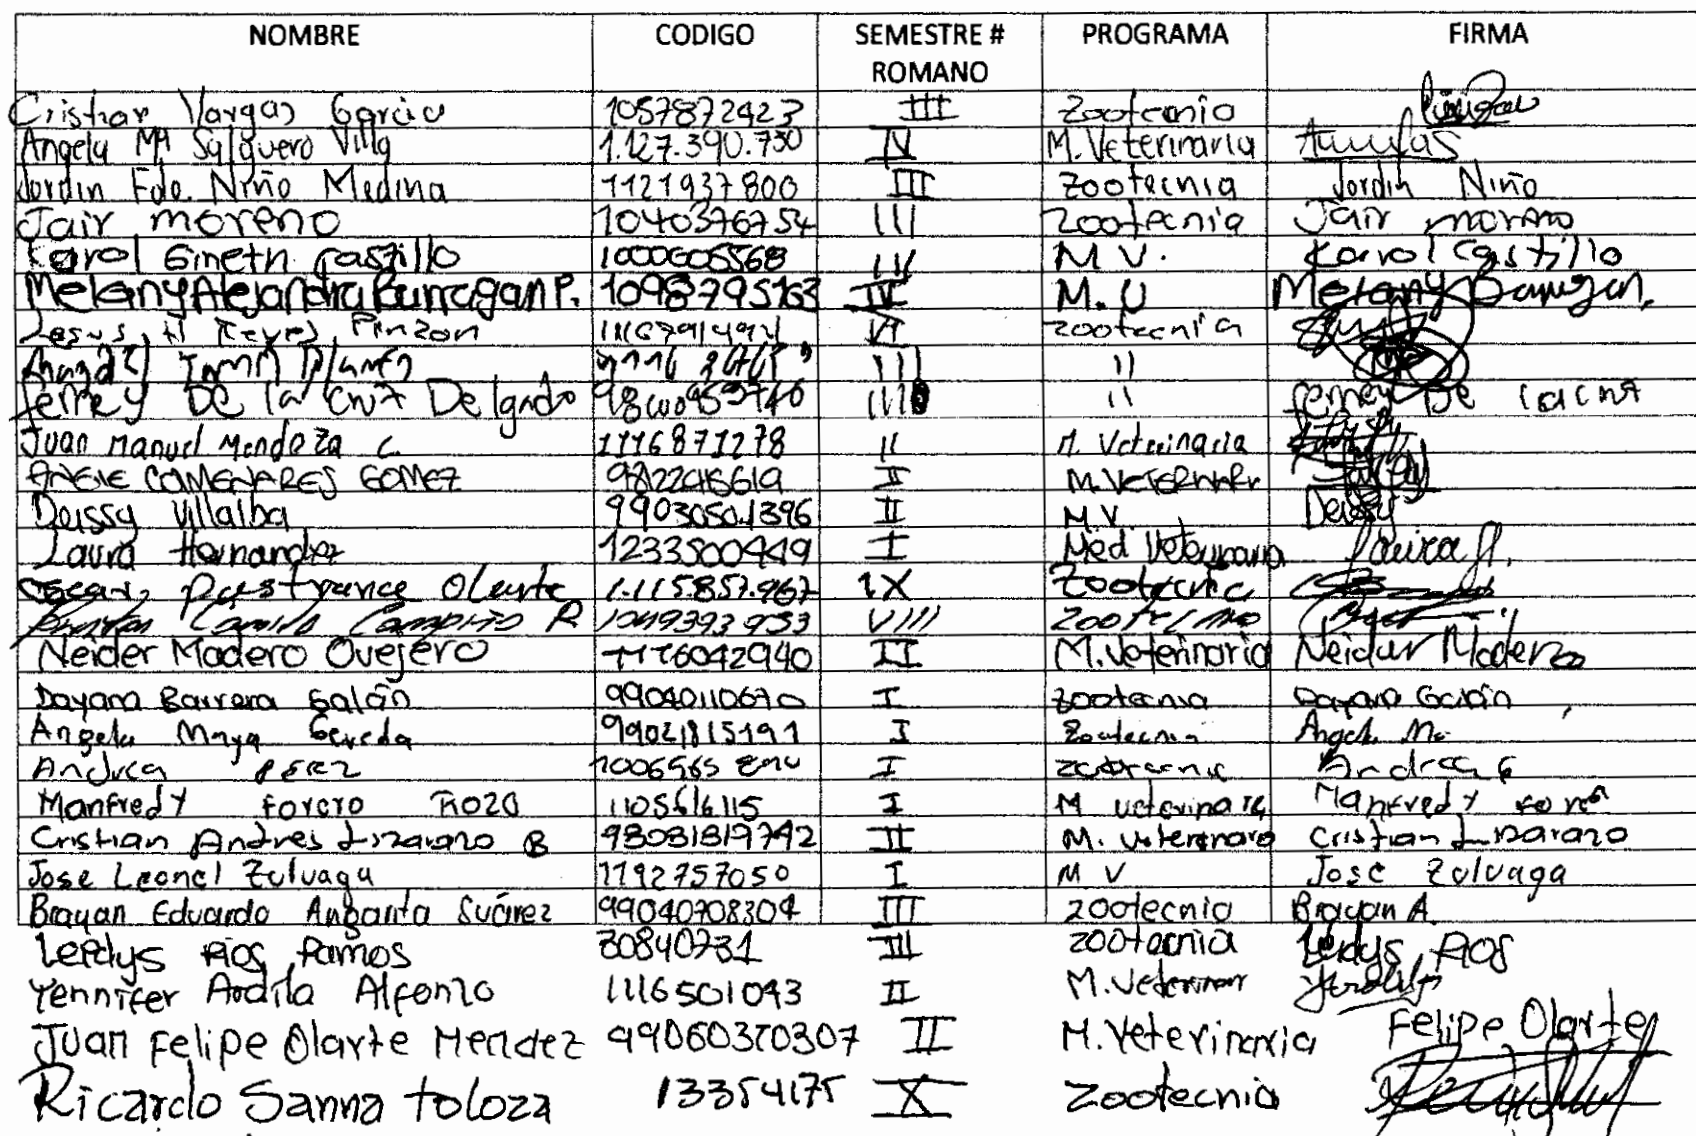 NOMBRE CODIGO SEMESTRE # ROMANO PROGRAMA FIRMA
Cristian Vargas Garcia 1057872423 III Zootecnia
Angela Mª Salguero Villa 1.127.390.730 IV M. Veterinaria
Jordin Fdo. Niño Medina 1121937800 III Zootecnia Jordin Niño
Jair moreno 1040376754 III Zootecnia Jair moreno
Karol Gineth Castillo 1000605568 III M V. Karol Castillo
Melany Alejandra Barragan P. 1098795163 IV M. V Melany Barragan.
Jesus H Reyes Pinzon 1116791494 VI zootecnia
III 11
ferney DE la cruz Delgado III 11 ferney DE la cruz
Juan Manuel Mendoza C. 1116871278 II M. Veterinaria
ANGIE COLMENARES GOMEZ II
Deissy Villalba 99030501396 II M.V. Deissy
Laura Hernandez 1233500449 I Med Veterinaria Laura H.
Oscar Pastrana Olarte 1.115.857.967 IX Zootecnia
Camilo R 1049393933 VIIII Zootecnia
Neider Madero Ovejero 1116042940 II M. Veterinaria Neider Madero
Dayana Barrera Galán 99040110670 I zootecnia Dayana Galán
Angela Maya Gereda 99021815191 I Zootecnia Angela Ma
Andrea PEREZ I zootecnia Andrea
Manfredy Forero ROZO 1105616115 I M veterinaria Manfredy Forero
Cristian Andres Lizarazo B 98081819742 II M. veterinaria Cristian Lizarazo
Jose Leonel Zuluaga 1192757050 I M V Jose Zuluaga
Brayan Eduardo Angarita Suárez 99040708304 III zootecnia Brayan A.
Leidys Rios Ramos 30840731 III zootecnia Leidys Rios
Yennifer Ardila Alfonzo 1116501043 II M. Veterinar
Juan Felipe Olarte Mendez 99060370307 II M. Veterinaria Felipe Olarte
Ricardo Sanna toloza 13354175 X Zootecnia